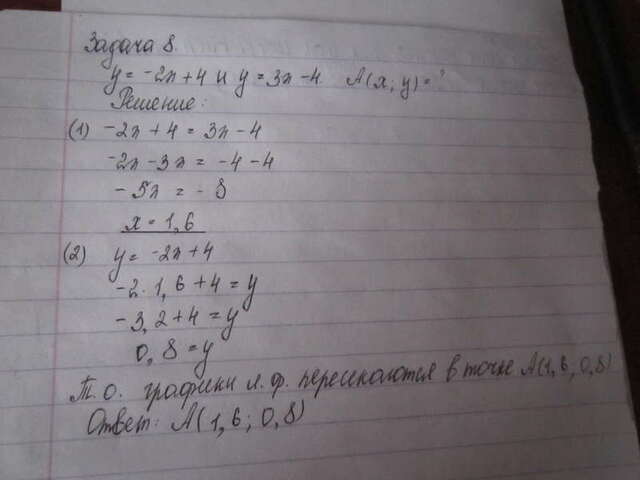 Задача 8.
y = -2x + 4 и y = 3x - 4. A(x; y) = ?
Решение:
(1) -2x + 4 = 3x - 4
-2x - 3x = -4 - 4
-5x = -8
x = 1,6
(2) y = -2x + 4
-2 · 1,6 + 4 = y
-3,2 + 4 = y
0,8 = y
Т.О. графики л.ф. пересекаются в точке A(1,6; 0,8)
Ответ: A(1,6; 0,8)